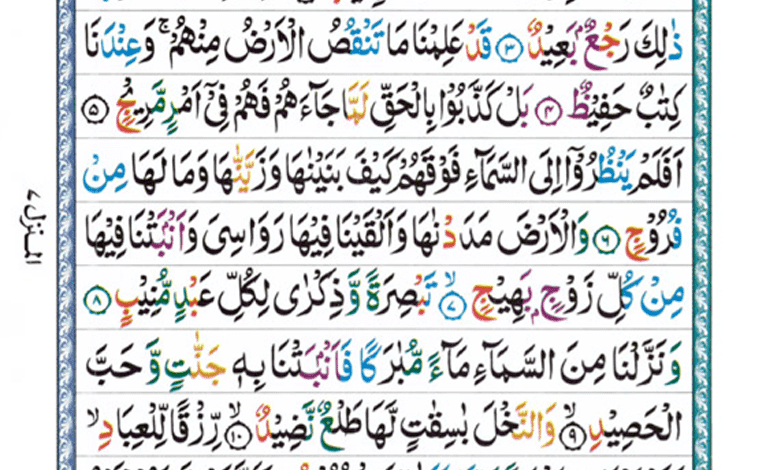 ذٰلِكَ رَجْعٌۢ بَعِيْدٌ ۝٣ قَدْ عَلِمْنَا مَا تَنْقُصُ الْاَرْضُ مِنْهُمْ ۚ وَعِنْدَنَا
كِتٰبٌ حَفِيْظٌ ۝٤ بَلْ كَذَّبُوْا بِالْحَقِّ لَمَّا جَآءَهُمْ فَهُمْ فِيْٓ اَمْرٍ مَّرِيْجٍ ۝٥
اَفَلَمْ يَنْظُرُوْٓا اِلَى السَّمَآءِ فَوْقَهُمْ كَيْفَ بَنَيْنٰهَا وَزَيَّنّٰهَا وَمَا لَهَا مِنْ
فُرُوْجٍ ۝٦ وَالْاَرْضَ مَدَدْنٰهَا وَاَلْقَيْنَا فِيْهَا رَوَاسِيَ وَاَنْۢبَتْنَا فِيْهَا
مِنْ كُلِّ زَوْجٍۢ بَهِيْجٍ ۝٧ۙ تَبْصِرَةً وَّذِكْرٰى لِكُلِّ عَبْدٍ مُّنِيْبٍ ۝٨
وَنَزَّلْنَا مِنَ السَّمَآءِ مَآءً مُّبٰرَكًا فَاَنْۢبَتْنَا بِهٖ جَنّٰتٍ وَّحَبَّ
الْحَصِيْدِ ۝٩ۙ وَالنَّخْلَ بٰسِقٰتٍ لَّهَا طَلْعٌ نَّضِيْدٌ ۝١٠ۙ رِّزْقًا لِّلْعِبَادِ ۙ
المنزل ٧